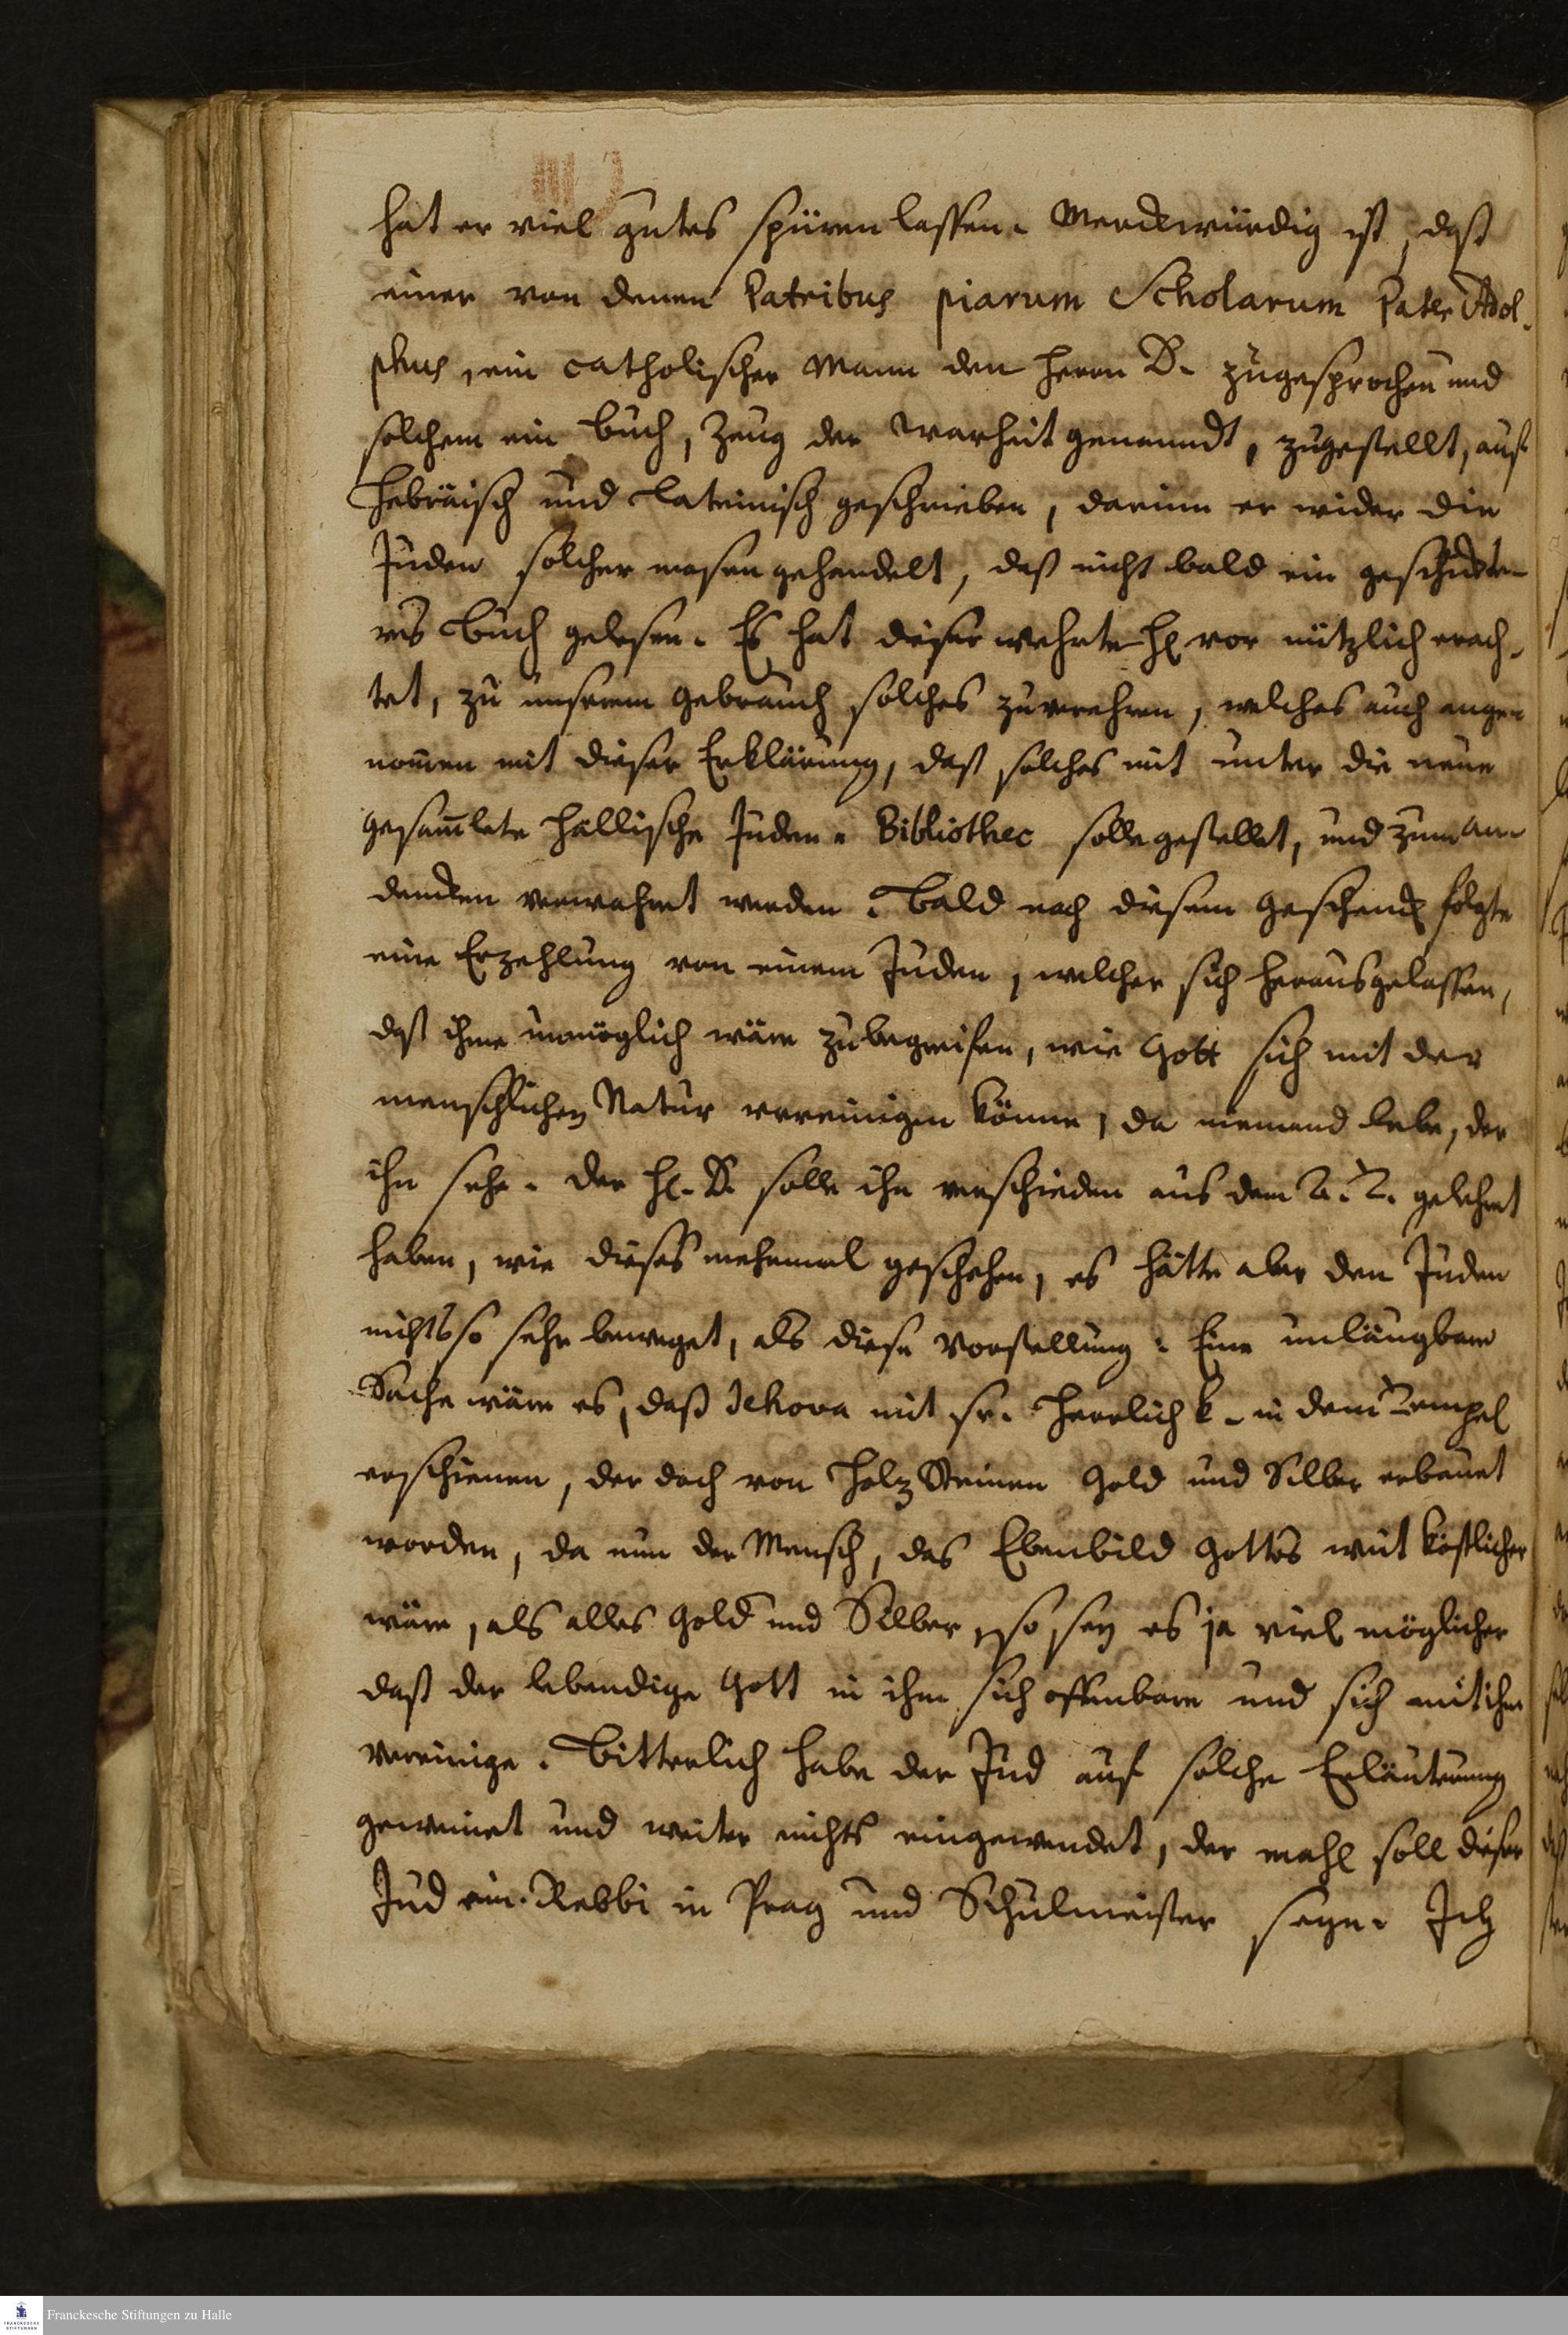 hat er viel gutes spüren lassen. Merckwürdig ist, daß
einer von denen Patribus piarum Scholarum Pater Adol-
phus, ein catholischer Mann den Herrn D. zugesprochen und
solchem ein Buch, Zeug der Warheit genanndt, zugestellt, auf
Hebräisch und Lateinisch geschrieben, darinn er wider die
Juden solcher masen gehandelt, daß nicht bald ein geschickte-
res Buch gelesen. Es hat dieser wehrte H. vor nützlich erach-
tet, zu unserem Gebrauch solches zuverehren, welches auch ange-
nom̄en mit dieser Erklärung, daß solches mit unter die neue
gesam̄lete Hallische Juden-Bibliothec solle gestellet, und zum An-
dencken verwahret werden. Bald nach diesem Geschenck folgte
eine Erzehlung von einem Juden, welcher sich herausgelassen,
daß ihme unmöglich wäre zubegreifen, wie Gott sich mit der
menschlichen Natur vereinigen könne, da niemand lebe, der
ihn sehe. Der H. D. solle ihn verschieden aus dem A. T. gelehret
haben, wie dieses mehrmal geschehen, es hätte aber den Juden
nichts so sehr beweget, als diese Vorstellung: Eine unläugbare
Sache wäre es, daß Jehova mit sr. Herrlichk. in dem Tempel
erschienen, der doch von Holz Steinen Gold und Silber erbauet
worden, da nun der Mensch, das Ebenbild Gottes weit köstlicher
wäre, als alles Gold und Silber, so sey es ja viel möglicher
daß der lebendige Gott in ihm sich offenbare und sich mit ihm
vereinige. Bitterlich habe der Jud auf solche Erläuterung
geweinet und weiter nichts eingewendet, der mahl soll dieser
Jud ein Rabbi in Prag und Schulmeister seyn. Ich
Franckesche Stiftungen zu Halle